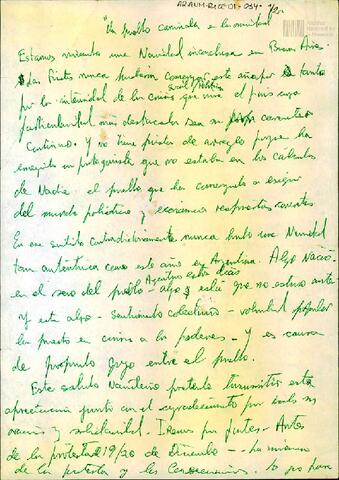 AR ANM-RICC-01-034-
"Un pueblo caminando a la unidad
Estamos viviendo una Navidad inconclusa en Buenos Aires
Las Fiestas nunca pudieron comenzar este año por lo tanto
por la intensidad de la crisis social y política que vive el país cuya
particularidad más destacada sea su carácter
continuo. Y no tiene pistas de arreglo porque ha
irrumpido un protagonista que no estaba en los cálculos
de Nadie: el pueblo que ha comenzado a exigir
del mundo político y económico respuestas
En ese sentido contradictoriamente nunca hubo una Navidad
tan auténtica como este año en Argentina. Algo Nació
en el seno del pueblo Argentino estos días
algo salió que no estuvo antes
Y este algo - sentimiento colectivo - voluntad popular
ha puesto en crisis a los poderes - y es causa
de profundo gozo entre el pueblo.
Este saludo Navideño pretende transmitir esta
apreciación junto con el agradecimiento por todas sus
oraciones y solidaridad. Iremos por partes - Antes
de la protesta del 19/20 de Diciembre - la misma
de la protesta y las consecuencias. Lo que pasa